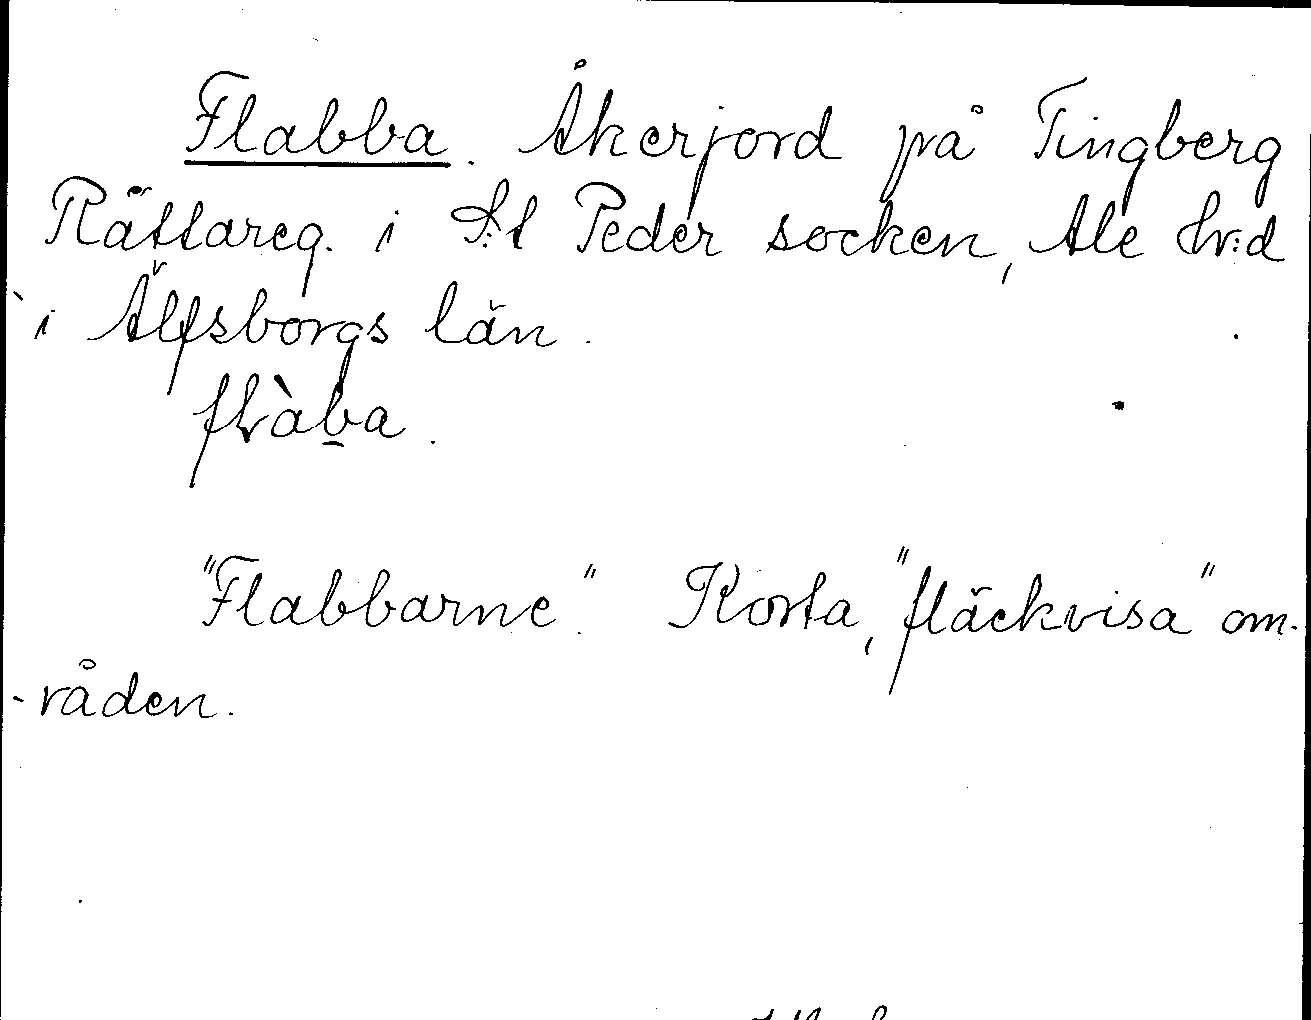 Flabba. Åkerjord på Tingberg
Rättareg. i S:t Peder socken, Ale hr:d
i Älfsborgs län.
flàba.
"Flabbarne". Korta, "fläckvisa" om-
-råden.